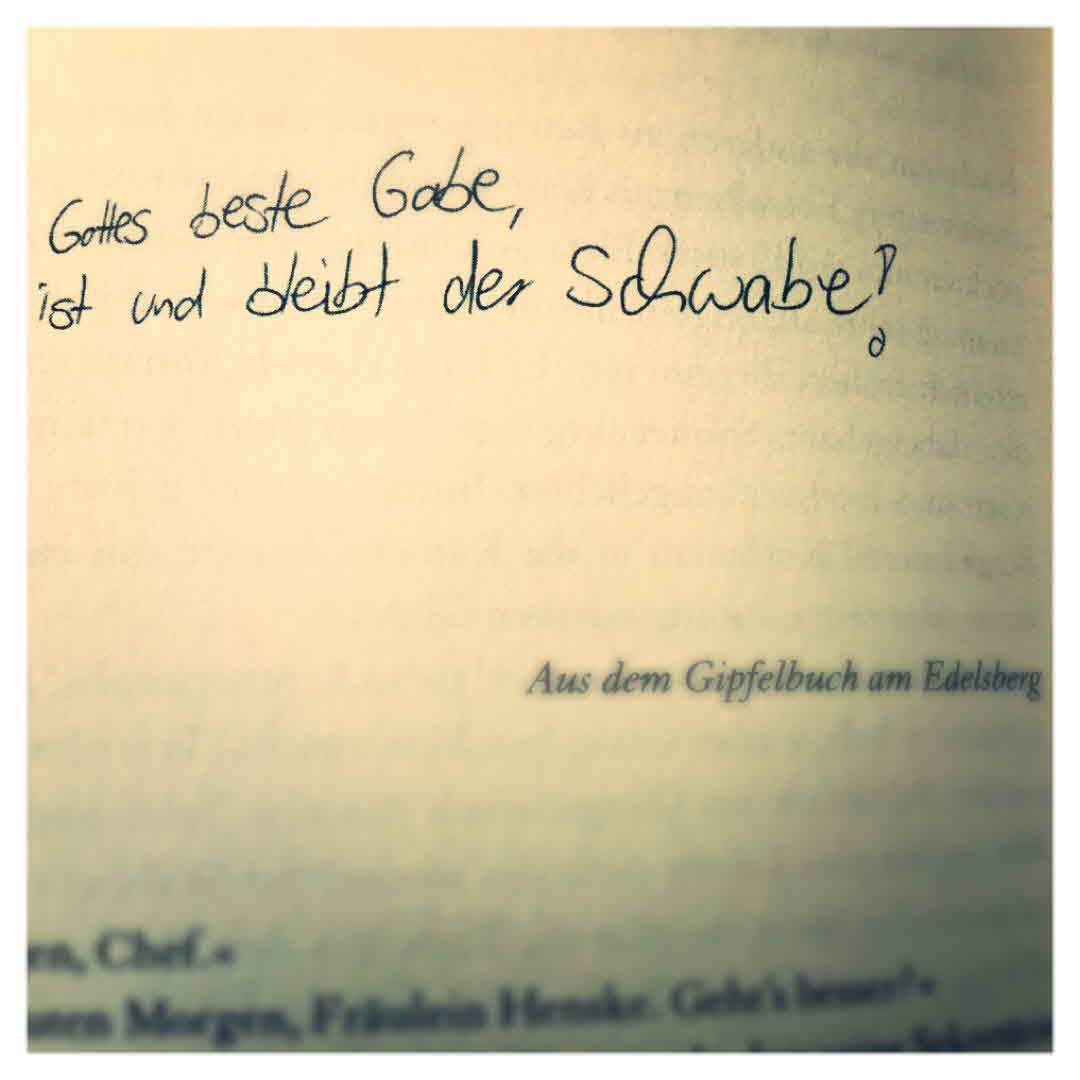 Gottes beste Gabe,
ist und bleibt der Schwabe!
Aus dem Gipfelbuch am Edelsberg
en, Chef.«
uten Morgen, Fräulein Henske. Geht's besser?«